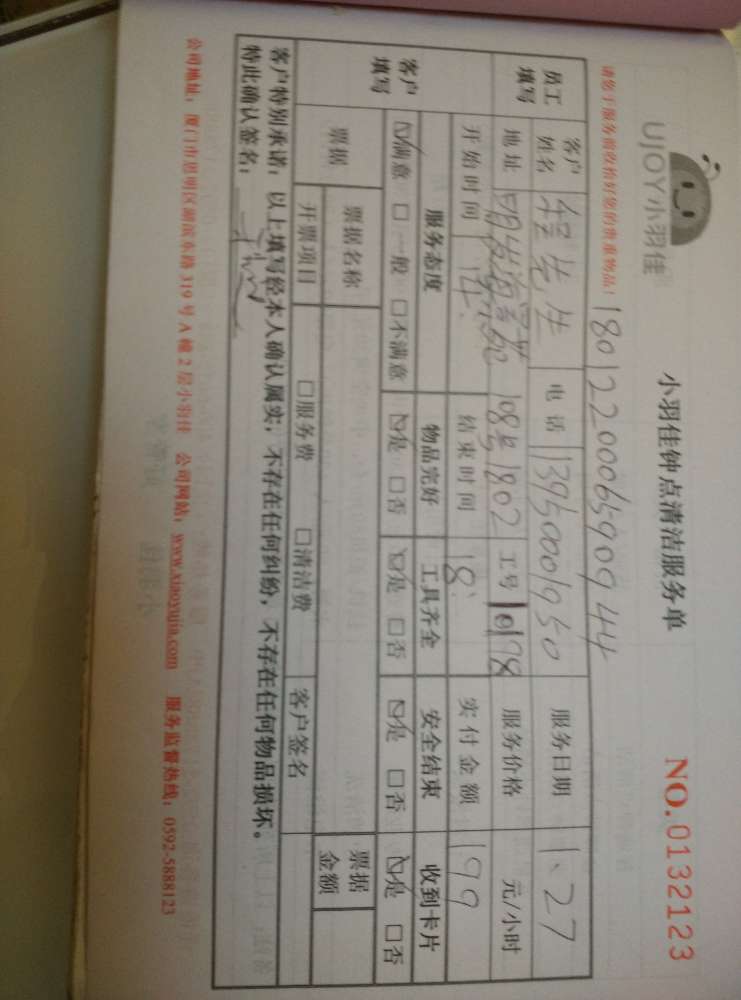 UJOY小羽佳
小羽佳钟点清洁服务单
NO.0132123
请您于服务前收拾好您的贵重物品！
1801220006590944
员工填写 客户姓名 程先生 电话 13950001950 服务日期 1、27
地址 108号1802 工号 10198 服务价格 元/小时
开始时间 14: 结束时间 18: 实付金额 199
客户填写 服务态度 物品完好 工具齐全 安全结束 收到卡片
☑满意 □一般 □不满意 ☑是 □否 ☑是 □否 ☑是 □否 ☑是 □否
票据 票据名称 票据金额
开票项目 □服务费 □清洁费 客户签名
客户特别承诺：以上填写经本人确认属实；不存在任何纠纷，不存在任何物品损坏。
特此确认签名：
公司地址：厦门市思明区湖滨东路319号A幢2层小羽佳 公司网站：www.xiaoyujia.com 服务监督热线：0592-5888123